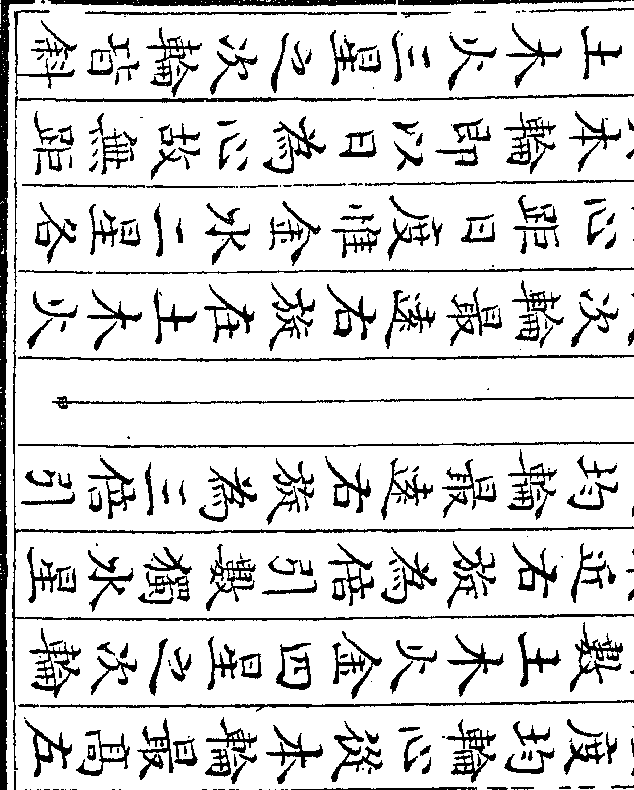 度均輪心從本輪最高左
數土木火金四星之次輪
近右旋為倍引數獨水星
均輪最遠右旋為三倍引
次輪最遠右旋在土木火
心距日度惟金水二星各
本輪即以日為心故無距
土木火三星之次輪皆斜